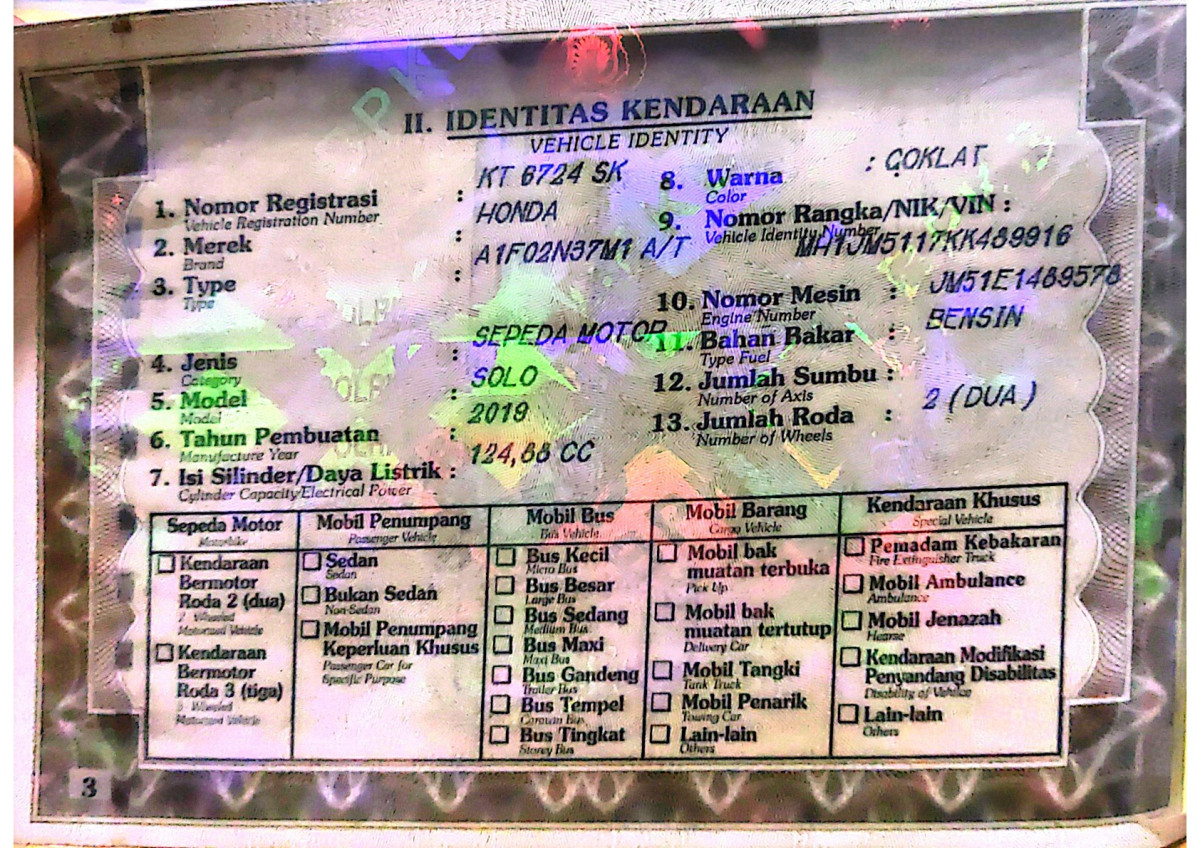 II. IDENTITAS KENDARAAN
VEHICLE IDENTITY
1. Nomor Registrasi : KT 6724 SK
Vehicle Registration Number
2. Merek : HONDA
Brand
3. Type : A1F02N37M1 A/T
Type
4. Jenis : SEPEDA MOTOR
Category
5. Model : SOLO
Model
6. Tahun Pembuatan : 2019
Manufacture Year
7. Isi Silinder/Daya Listrik : 124,88 CC
Cylinder Capacity/Electrical Power
8. Warna : COKLAT
Color
9. Nomor Rangka/NIK/VIN :
Vehicle Identity Number
MH1JM5117KK489916
10. Nomor Mesin : JM51E1489578
Engine Number
11. Bahan Bakar : BENSIN
Type Fuel
12. Jumlah Sumbu :
Number of Axis
13. Jumlah Roda : 2 (DUA)
Number of Wheels
Sepeda Motor
Motorbike
Kendaraan
Bermotor
Roda 2 (dua)
2 Wheeled
Motorized Vehicle
Kendaraan
Bermotor
Roda 3 (tiga)
3 Wheeled
Motorized Vehicle
Mobil Penumpang
Passenger Vehicle
Sedan
Sedan
Bukan Sedan
Non-Sedan
Mobil Penumpang
Keperluan Khusus
Passenger Car for
Specific Purpose
Mobil Bus
Bus Vehicle
Bus Kecil
Micro Bus
Bus Besar
Large Bus
Bus Sedang
Medium Bus
Bus Maxi
Maxi Bus
Bus Gandeng
Trailer Bus
Bus Tempel
Caravan Bus
Bus Tingkat
Storey Bus
Mobil Barang
Cargo Vehicle
Mobil bak
muatan terbuka
Pick Up
Mobil bak
muatan tertutup
Delivery Car
Mobil Tangki
Tank Truck
Mobil Penarik
Towing Car
Lain-lain
Others
Kendaraan Khusus
Special Vehicle
Pemadam Kebakaran
Fire Extinguisher Truck
Mobil Ambulance
Ambulance
Mobil Jenazah
Hearse
Kendaraan Modifikasi
Penyandang Disabilitas
Disability of Vehilce
Lain-lain
Others
3